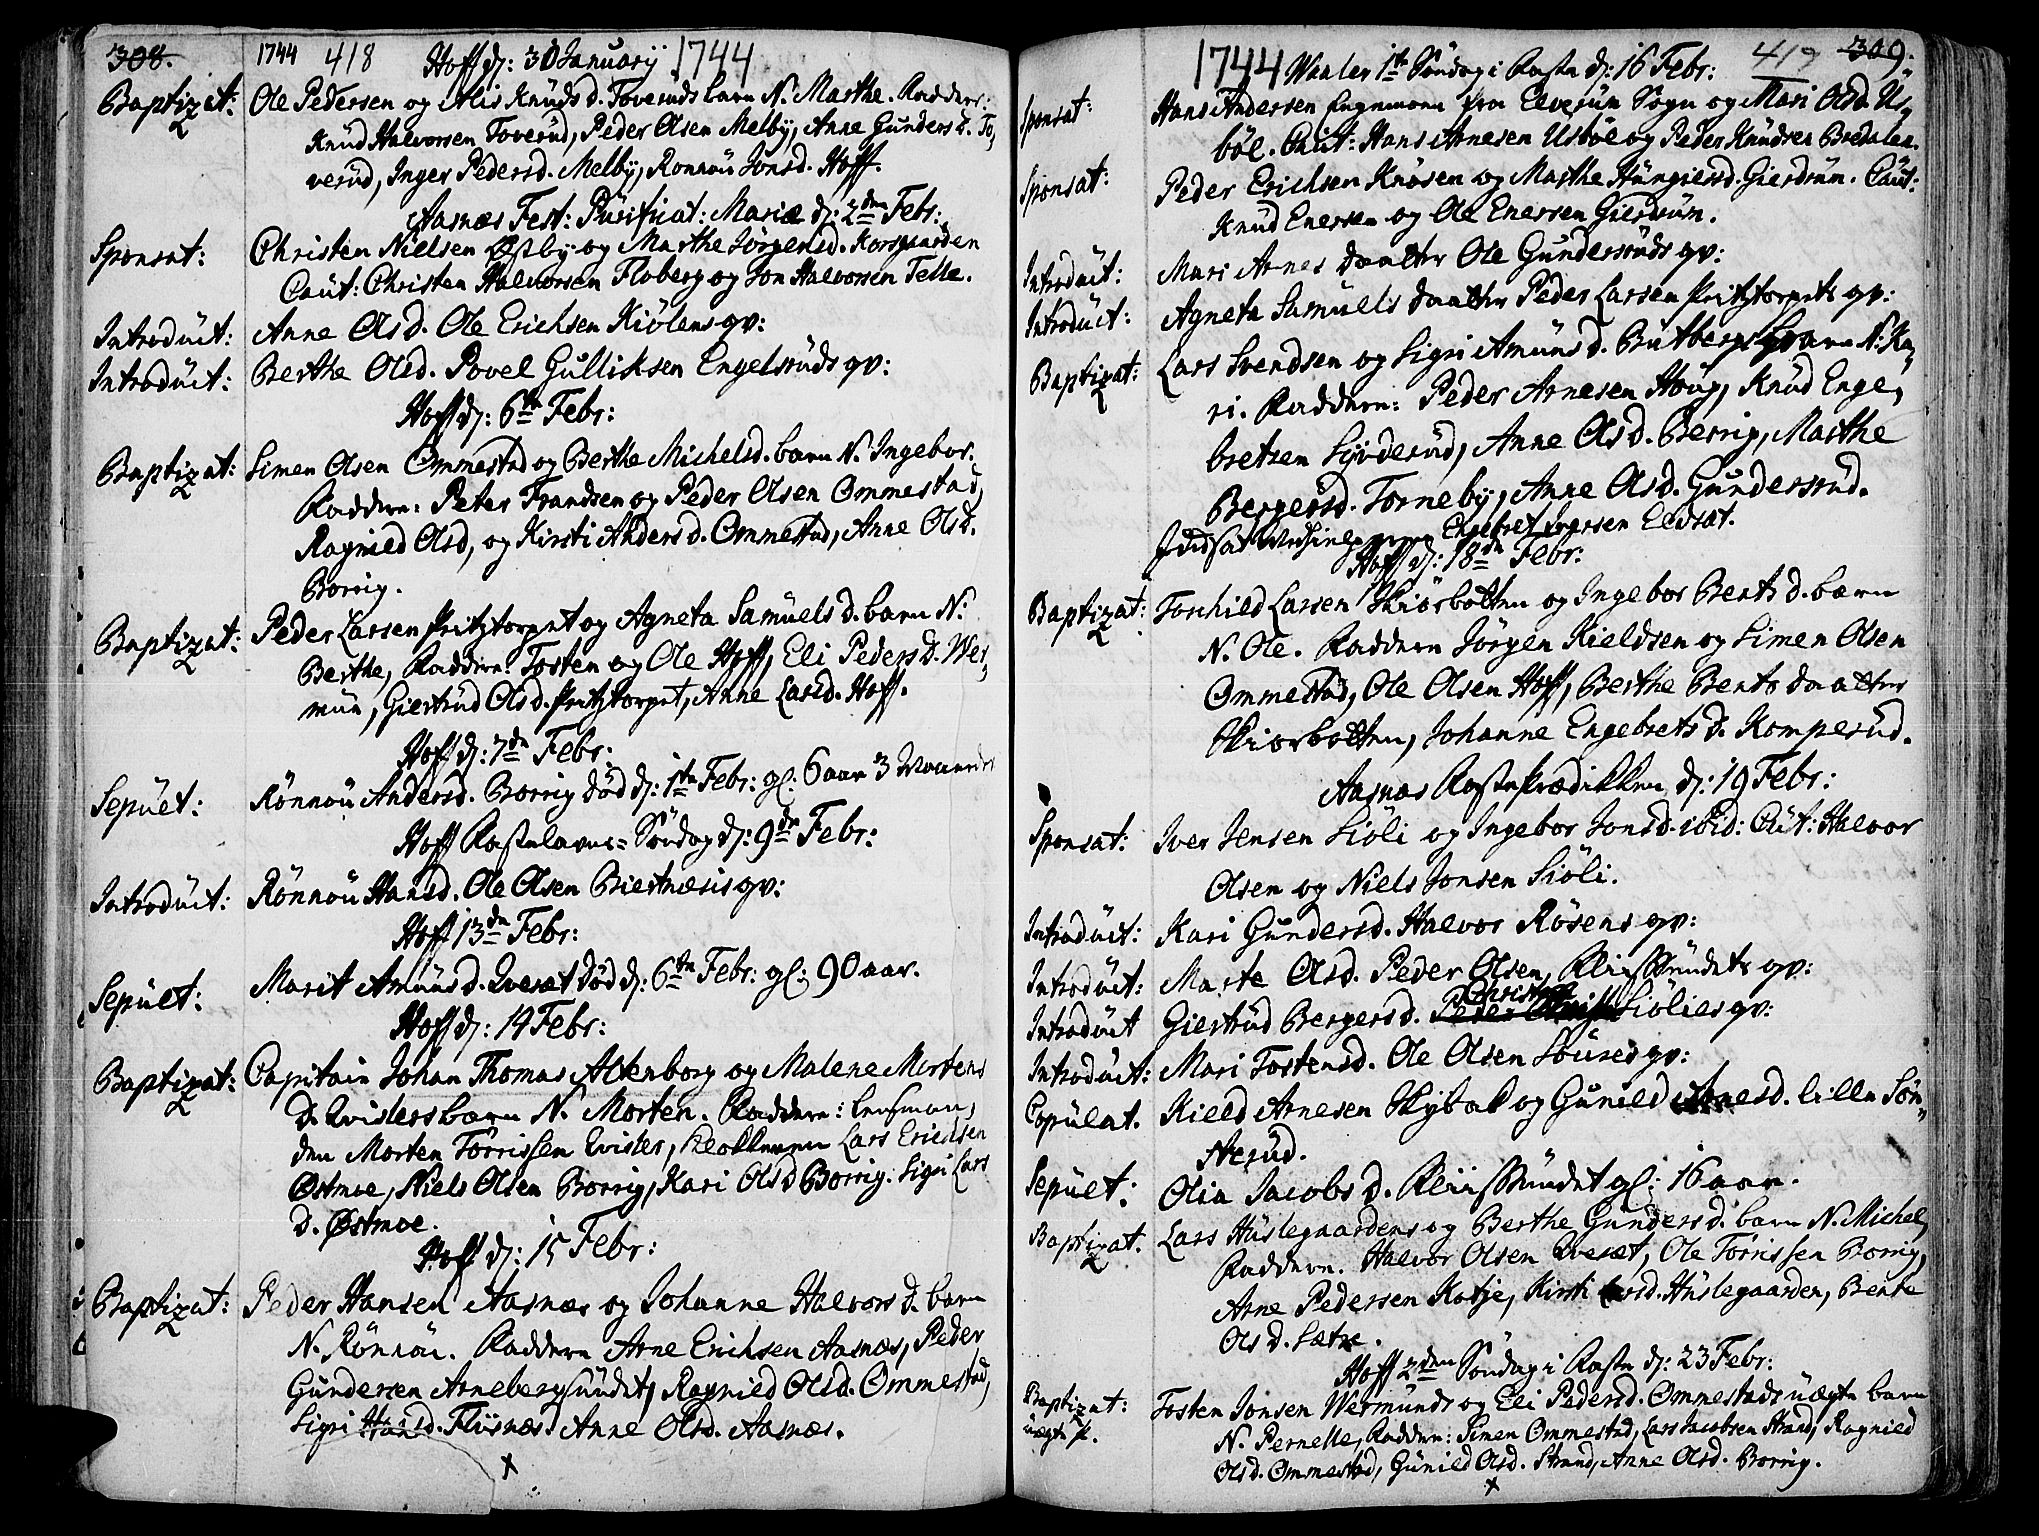 308. 1744 418 Hoff d: 30 January 1744
Baptizat: Ole Pedersen og Alis Knüds d. Toverüds barn N. Marthe. Faddere:
Knud Halvorsen Toverud, Peder Olsen Melby, Anne Gunders d. To,
verüd, Inger Pedersd. Melby, Ronnou Jonsd. Hoff.
Aasnæs Fest: Purificat: Mariæ d: 2den Febr:
Sponsat: Christen Nielsen Østby og Marthe Jörgensd. Korsgaarden
Caut: Christen Halvorsen Floberg og Jon Halvorsen Telle.
Introduct: Anne Olsd. Ole Erichsen Kiölens qv:
Introduct: Berthe Olsd. Povel Gulliksen Engelsrüds qv:
Hoff d: 6te Febr:
Baptizat: Simen Olsen Ommestad og Berthe Michelsd. barn N. Ingebor.
Faddere: Peter Frandsen og Peder Olsen Ommestad,
Ragnild Olsd, og Kirsti Anders d. Ommestad, Anne Olsd.
Borrig.
Baptizat: Peder Larsen Pritztorpet og Agneta Samuels d. barn N.
Berthe, Faddere: Tosten og Ole Hoff, Eli Peders d. Wer,
mün, Giertrüd Olsd. Pritztorpet, Anne Larsd. Hoff.
Hoff d: 7de Febr:
Sepült: Rönnou Andersd. Borrig död d: 1te Febr: gl: 6 aar 3 Maaneder
Hoff Fastelavns- Söndag d: 9de Febr:
Introduct: Rönnou Hansd. Ole Olsen Biertnæsis qv:
Hoff 13de Febr:
Sepült: Marit Amünd d. Qveset död d: 6te Febr: gl: 90 aar.
Hoff d: 14 Febr:
Baptizat: Capitain Johan Thomas Altenborg og Malene Mortens
d. Qvislers barn N. Morten. Faddere: Lensman,
den Morten Törrissen Qvisler, Klokkeren Lars Erichsen
Østmoe, Niels Olsen Borrig, Kari Olsd Borrig. Sigri Lars
d. Østmoe.
Hoff d: 15 Febr:
Baptizat: Peder Hansen Aasnæs og Johanne Halvors d. barn
N. Rönnou. Faddere Arne Erichsen Aasnæs, Peder
Gündersen Arnebergsündet, Ragnild Olsd. Ommestad,
Sigri Hansd. Flisnæs. Anne Olsd. Aasnæs.
1744 Waaler 1te Söndag i Faste d: 16 Febr: 419 309.
Sponsat: Hans Andersen Engemoen fra Elverum Sogn og Mari Olsd. Us,
böl. Caut: Hans Arnesen Usböl og Peder Knudsen Bredalen.
Sponsat: Peder Erichsen Knosen og Marthe Hüngiersd. Gierdrum. Caut:
Knud Enersen og Ole Enersen Gierdrum.
Introduct: Mari Arnes daatter Ole Gunderssrüds qv:
Introduct: Agneta Samuels daatter Peder Larsen Pritztorpets qv:
Baptizat: Lars Svendsen og Sigri Amüns d. Butbergs barn N. Ka,
ri. Faddere: Peder Arnesen Houg, Knud Enge,
bretsen Lyderud, Anne Olsd. Berrig, Marthe
Bergersd. Torneby, Anne Olsd. Gunderssrud.
Engebret Iversen Eldsæt.
Hoff d: 18de Febr:
Baptizat: Torchild Larsen Skiärbotten og Ingebor Bents d. barn
N. Ole. Faddere Jörgen Kieldsen og Simen Olsen
Ommestad, Ole Olsen Hoff, Berthe Bents daatter
Skiarbotten, Johanne Engebrets d. Komperud.
Aasnæs Fasteprædikken d: 19 Febr:
Sponsat: Iver Jensen Siöli og Ingebor Jonsd. ibid: Caut: Halvor
Olsen og Niels Jonsen Siöli.
Introduct: Kari Gundersd. Halvor Rösens qv:
Introduct: Marte Olsd. Peder Olsen Fliissündets qv:
Introduct Giertrüd Bergersd. Peder Christen Siölies qv:
Introduct: Mari Tostensd. Ole Olsen Souses qv:
Copulat. Kield Arnesen Skybak og Gunild Arnesd. lille Sön,
sterud.
Sepült: Olia Jacobs d. Fliissündet gl: 16 aar.
Baptizat. Lars Huslegaardens og Berthe Günders d. barn N. Michel,
Faddere. Halvor Olsen Qveset, Ole Törrissen Borrig,
Arne Pedersen Katje, Kirsti Larsd. Huslegaarden, Bente
Olsd. Sætre.
Hoff 2den Söndag i Faste d: 23 Febr:
Baptizat: Tosten Jonsen Wermunds og Eli Pedersd. Ommestads uægte barn
uægte N. Pernelle, Faddere: Simen Ommestad, Lars Jacobsen Strand, Ragnild
Olsd. Ommestad, Gunild Olsd. Strand, Anne Olsd. Borrig.